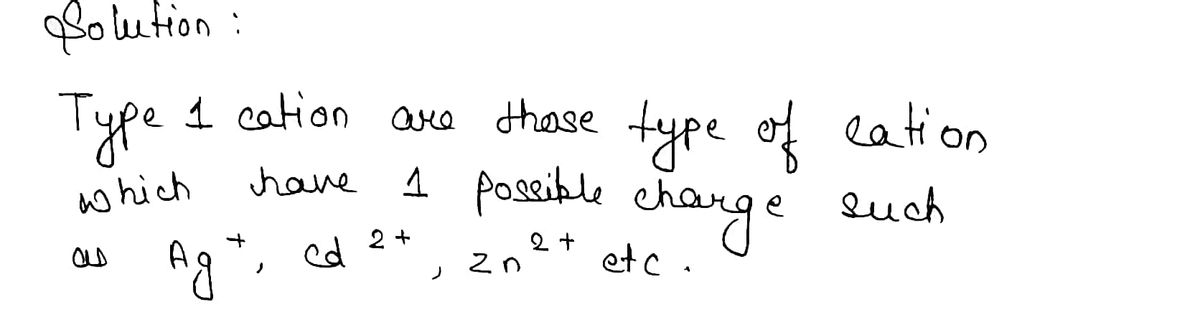 Solution :
Type 1 cation are those type of cation
which have 1 possible charge such
as Ag⁺, cd²⁺, zn²⁺ etc.